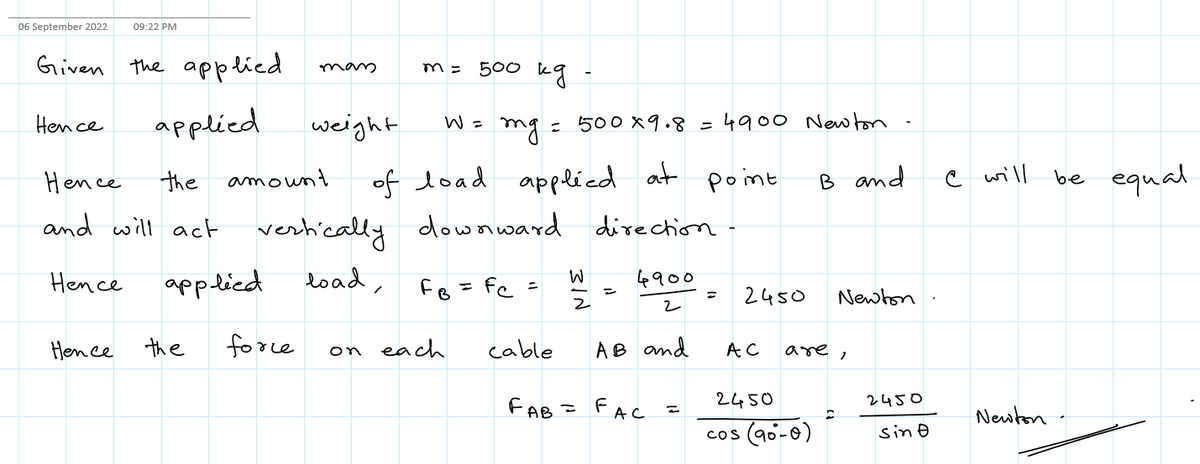 06 September 2022 09:22 PM
Given the applied mass m = 500 kg.
Hence applied weight W = mg = 500 × 9.8 = 4900 Newton.
Hence the amount of load applied at point B and C will be equal
and will act vertically downward direction.
Hence applied load, F_B = F_C = W/2 = 4900/2 = 2450 Newton.
Hence the force on each cable AB and AC are,
F_AB = F_AC = 2450/cos (90°-θ) = 2450/sin θ Newton.